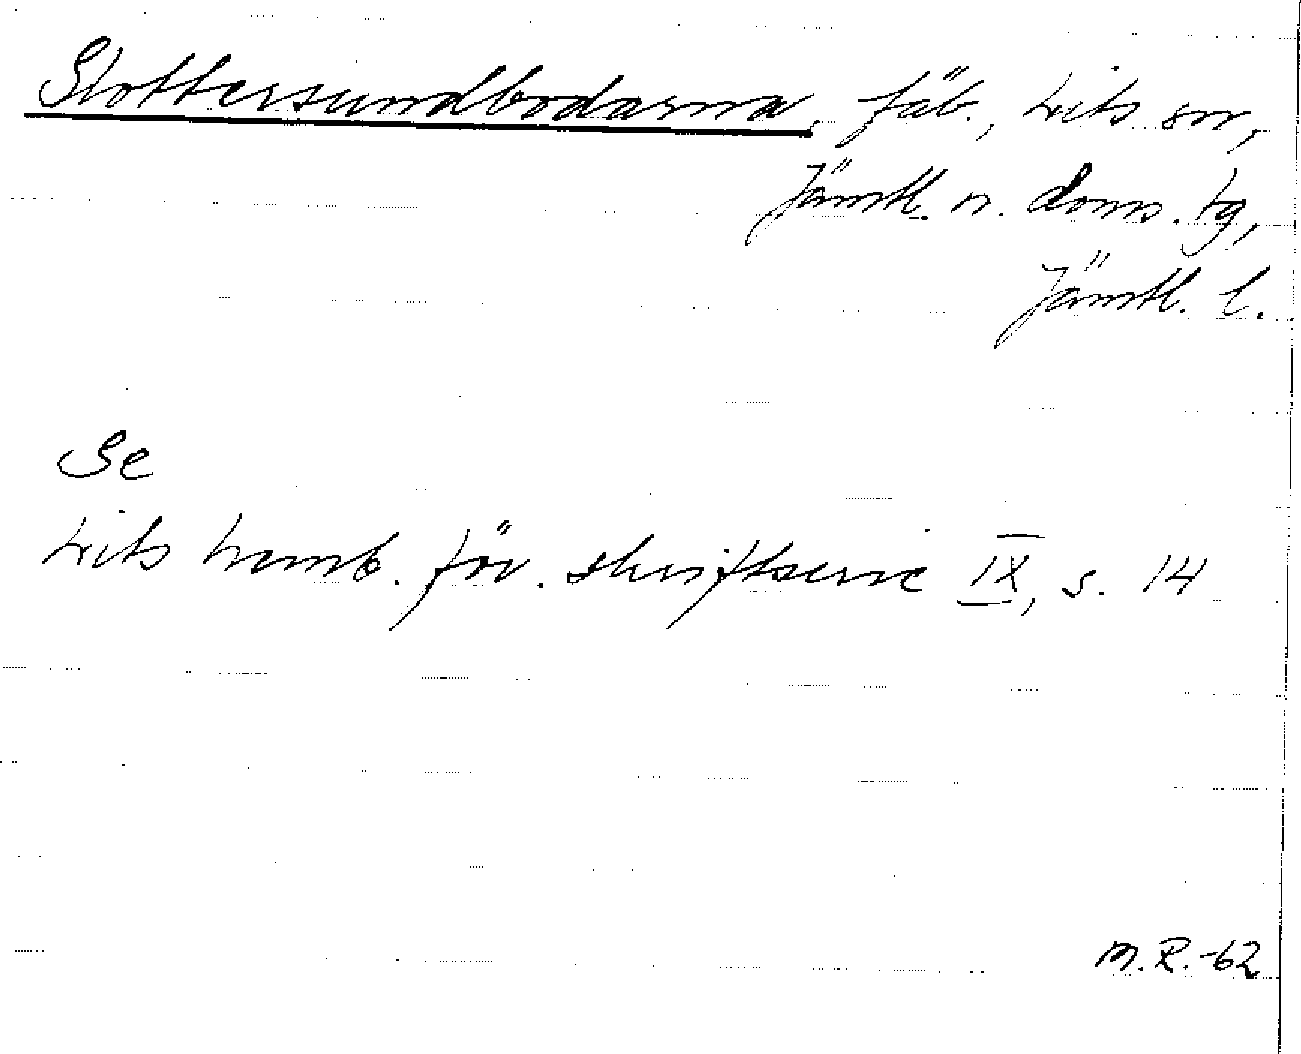 Slottersundbodarna, fäb., Lits sn,
Jämtl. n. doms. tg,
Jämtl. l.
Se
Lits hemb. för. skriftserie IX, s. 14
M.R. -62